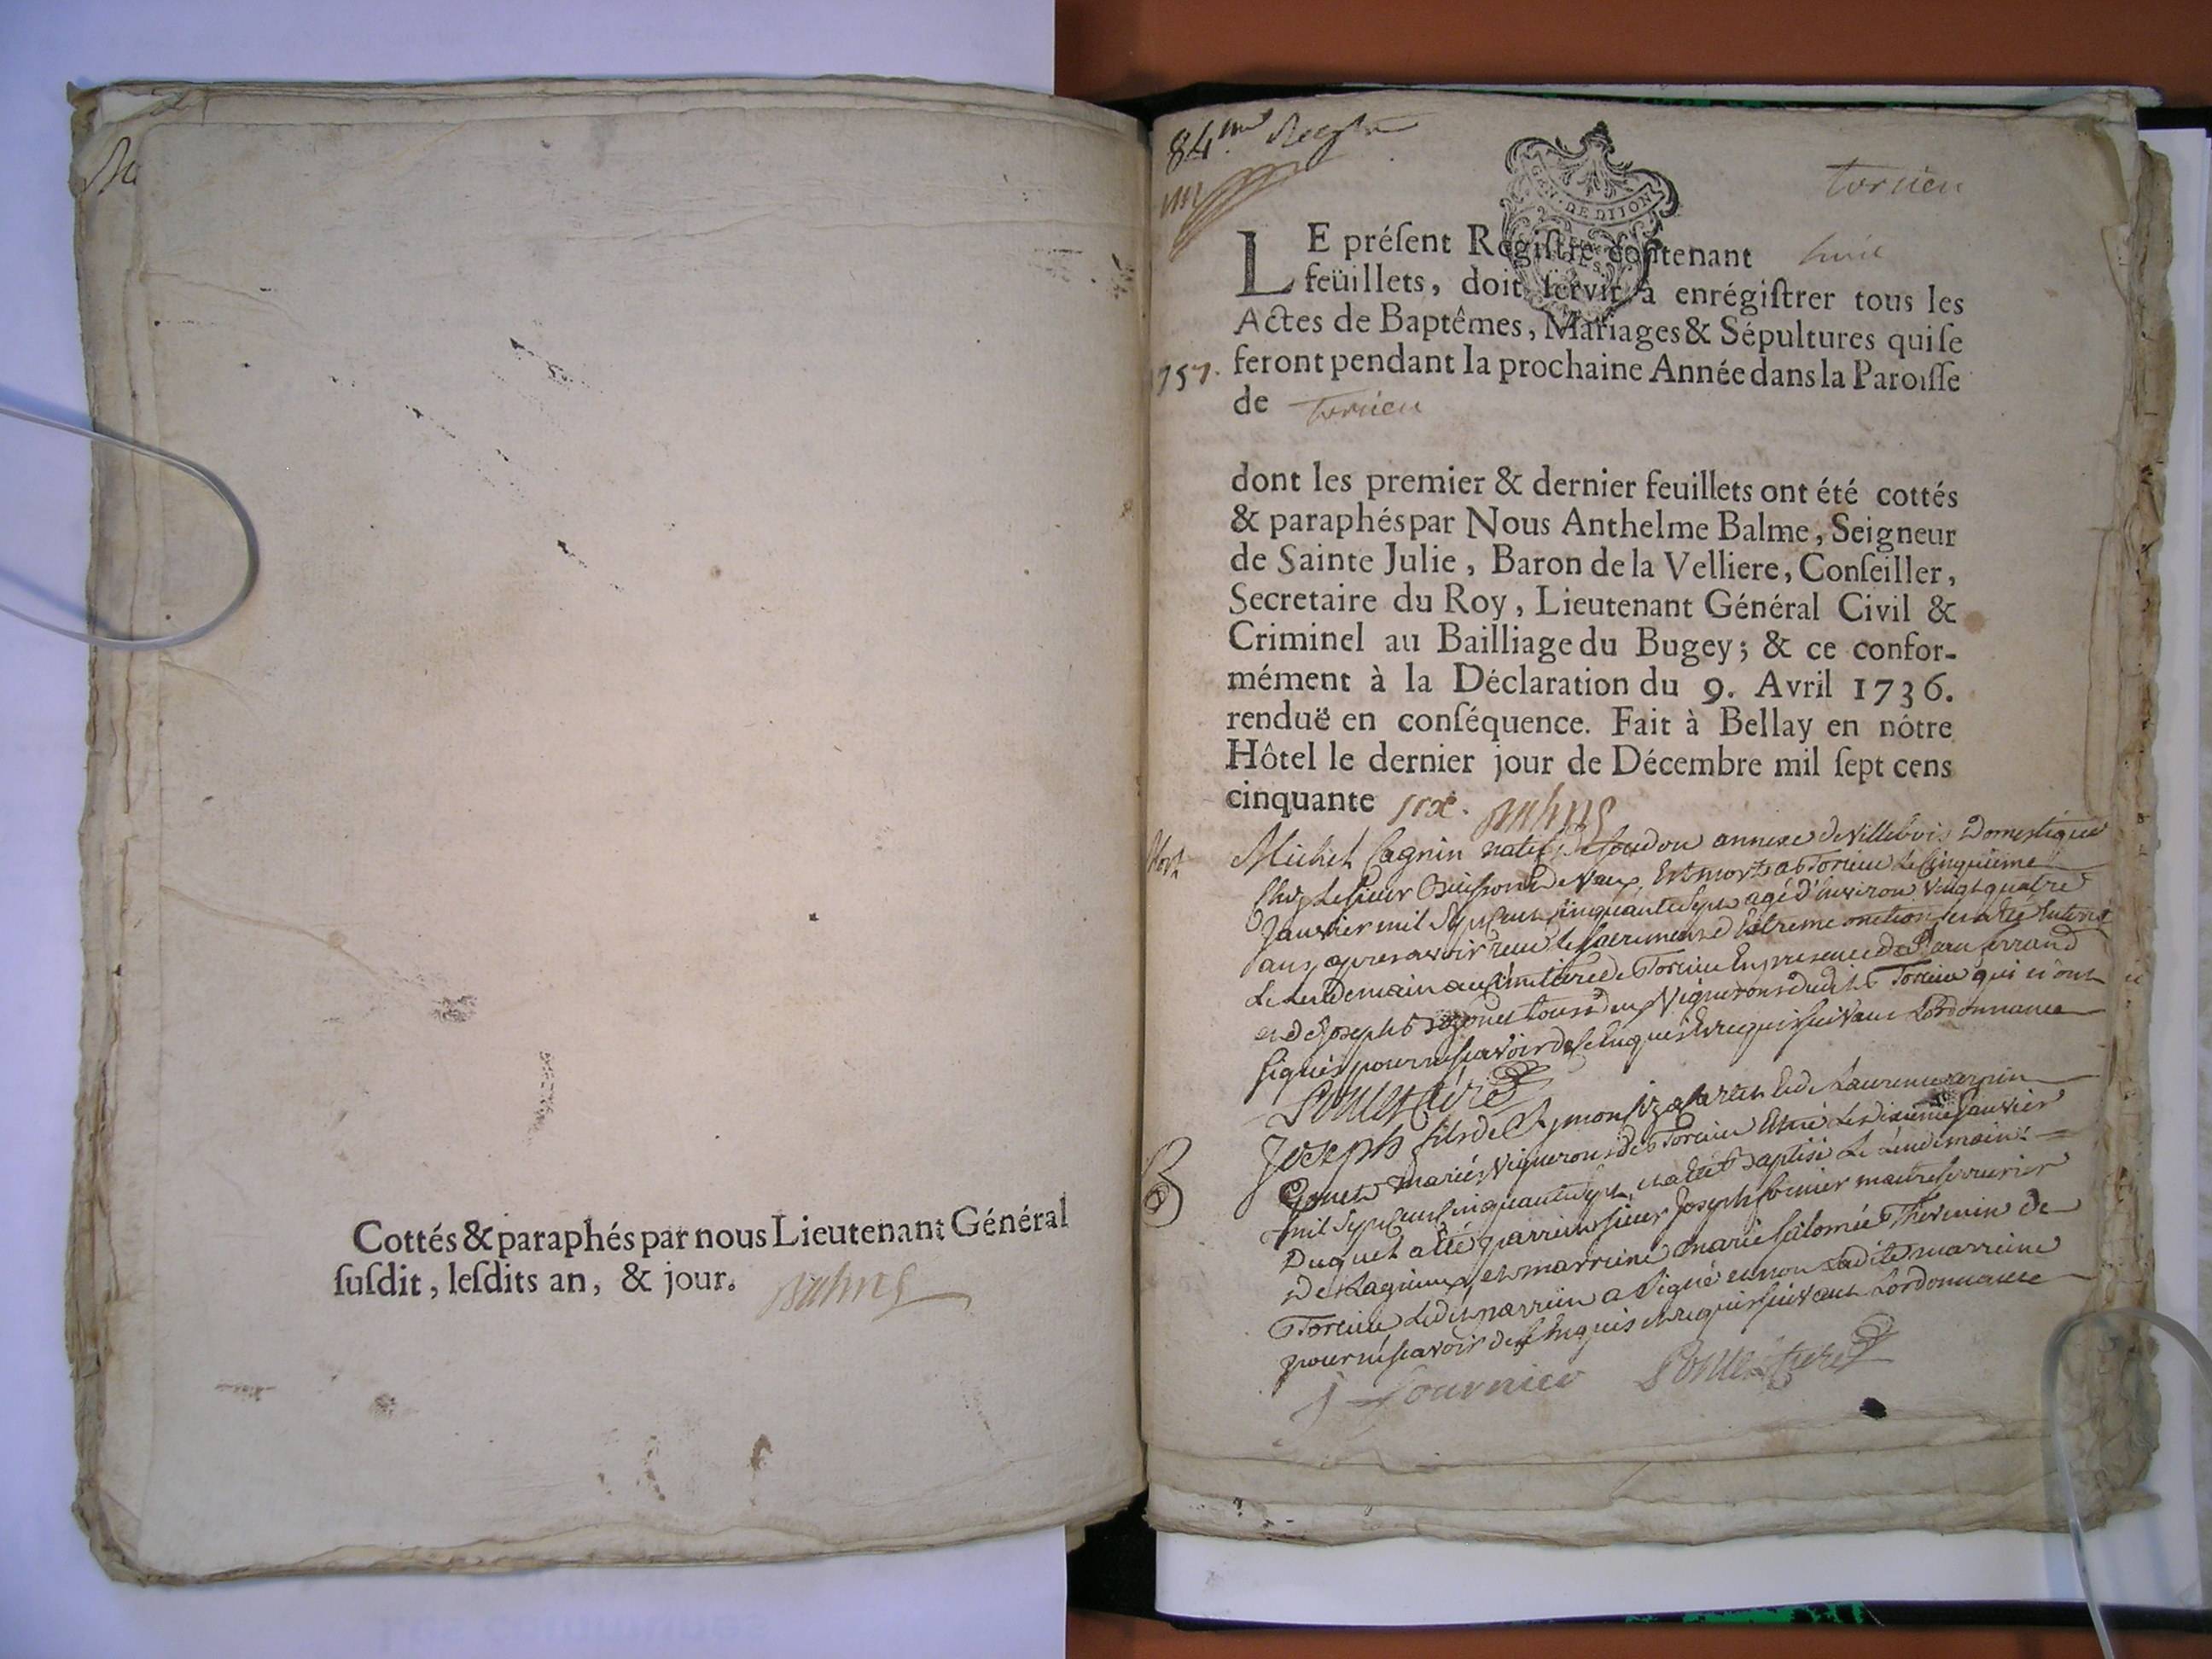 Cottés & paraphés par nous Lieutenant Général
ſuſdit, leſdits an, & jour. Balme
84me Regtre
GEN. DE DIJON
torcieu
LE préſent Regiſtre contenant huit
feüillets, doit ſervir à enrégiſtrer tous les
Actes de Baptêmes, Mariages & Sépultures qui ſe
1757. feront pendant la prochaine Année dans la Paroiſſe
de torcieu
dont les premier & dernier feuillets ont été cottés
& paraphés par Nous Anthelme Balme, Seigneur
de Sainte Julie, Baron de la Velliere, Conſeiller,
Secretaire du Roy, Lieutenant Général Civil &
Criminel au Bailliage du Bugey; & ce confor-
mément à la Déclaration du 9. Avril 1736.
renduë en conſéquence. Fait à Bellay en nôtre
Hôtel le dernier jour de Décembre mil ſept cens
cinquante six. Balme
Mort
Michel Cagnin natif de annexe de Villebois Domestique
Chez le sieur de Vaux, Est mort a Torcieu le Cinquieme
Janvier mil sept cent cinquante sept agé d'environ vingt quatre
ans, apres avoir reçu le sacrement d'Extreme onction, et a été Enterré
le Lendemain au Cimitiere de Torcieu En presence de ferrand
et de Joseph tous deux Vignerons dudit Torcieu qui n'ont
signés pour ne sçavoir de ce Enquis et requis suivant L'ordonnance
B
Joseph fils de Aymon et de Laurence
mariés Vignerons de Torcieu Est né le dixieme Janvier
mil sept cent cinquante sept, et a été Baptisé le Lendemain.
Duquel a été parrein sieur Joseph fornier maitre serrurier
de Lagnieu, et marreine marie salomée Thevenin de
Torcieu Ledit parrein a signé et non Ladite marreine
pour ne sçavoir de ce Enquis et requis suivant L'ordonnance
J fournier